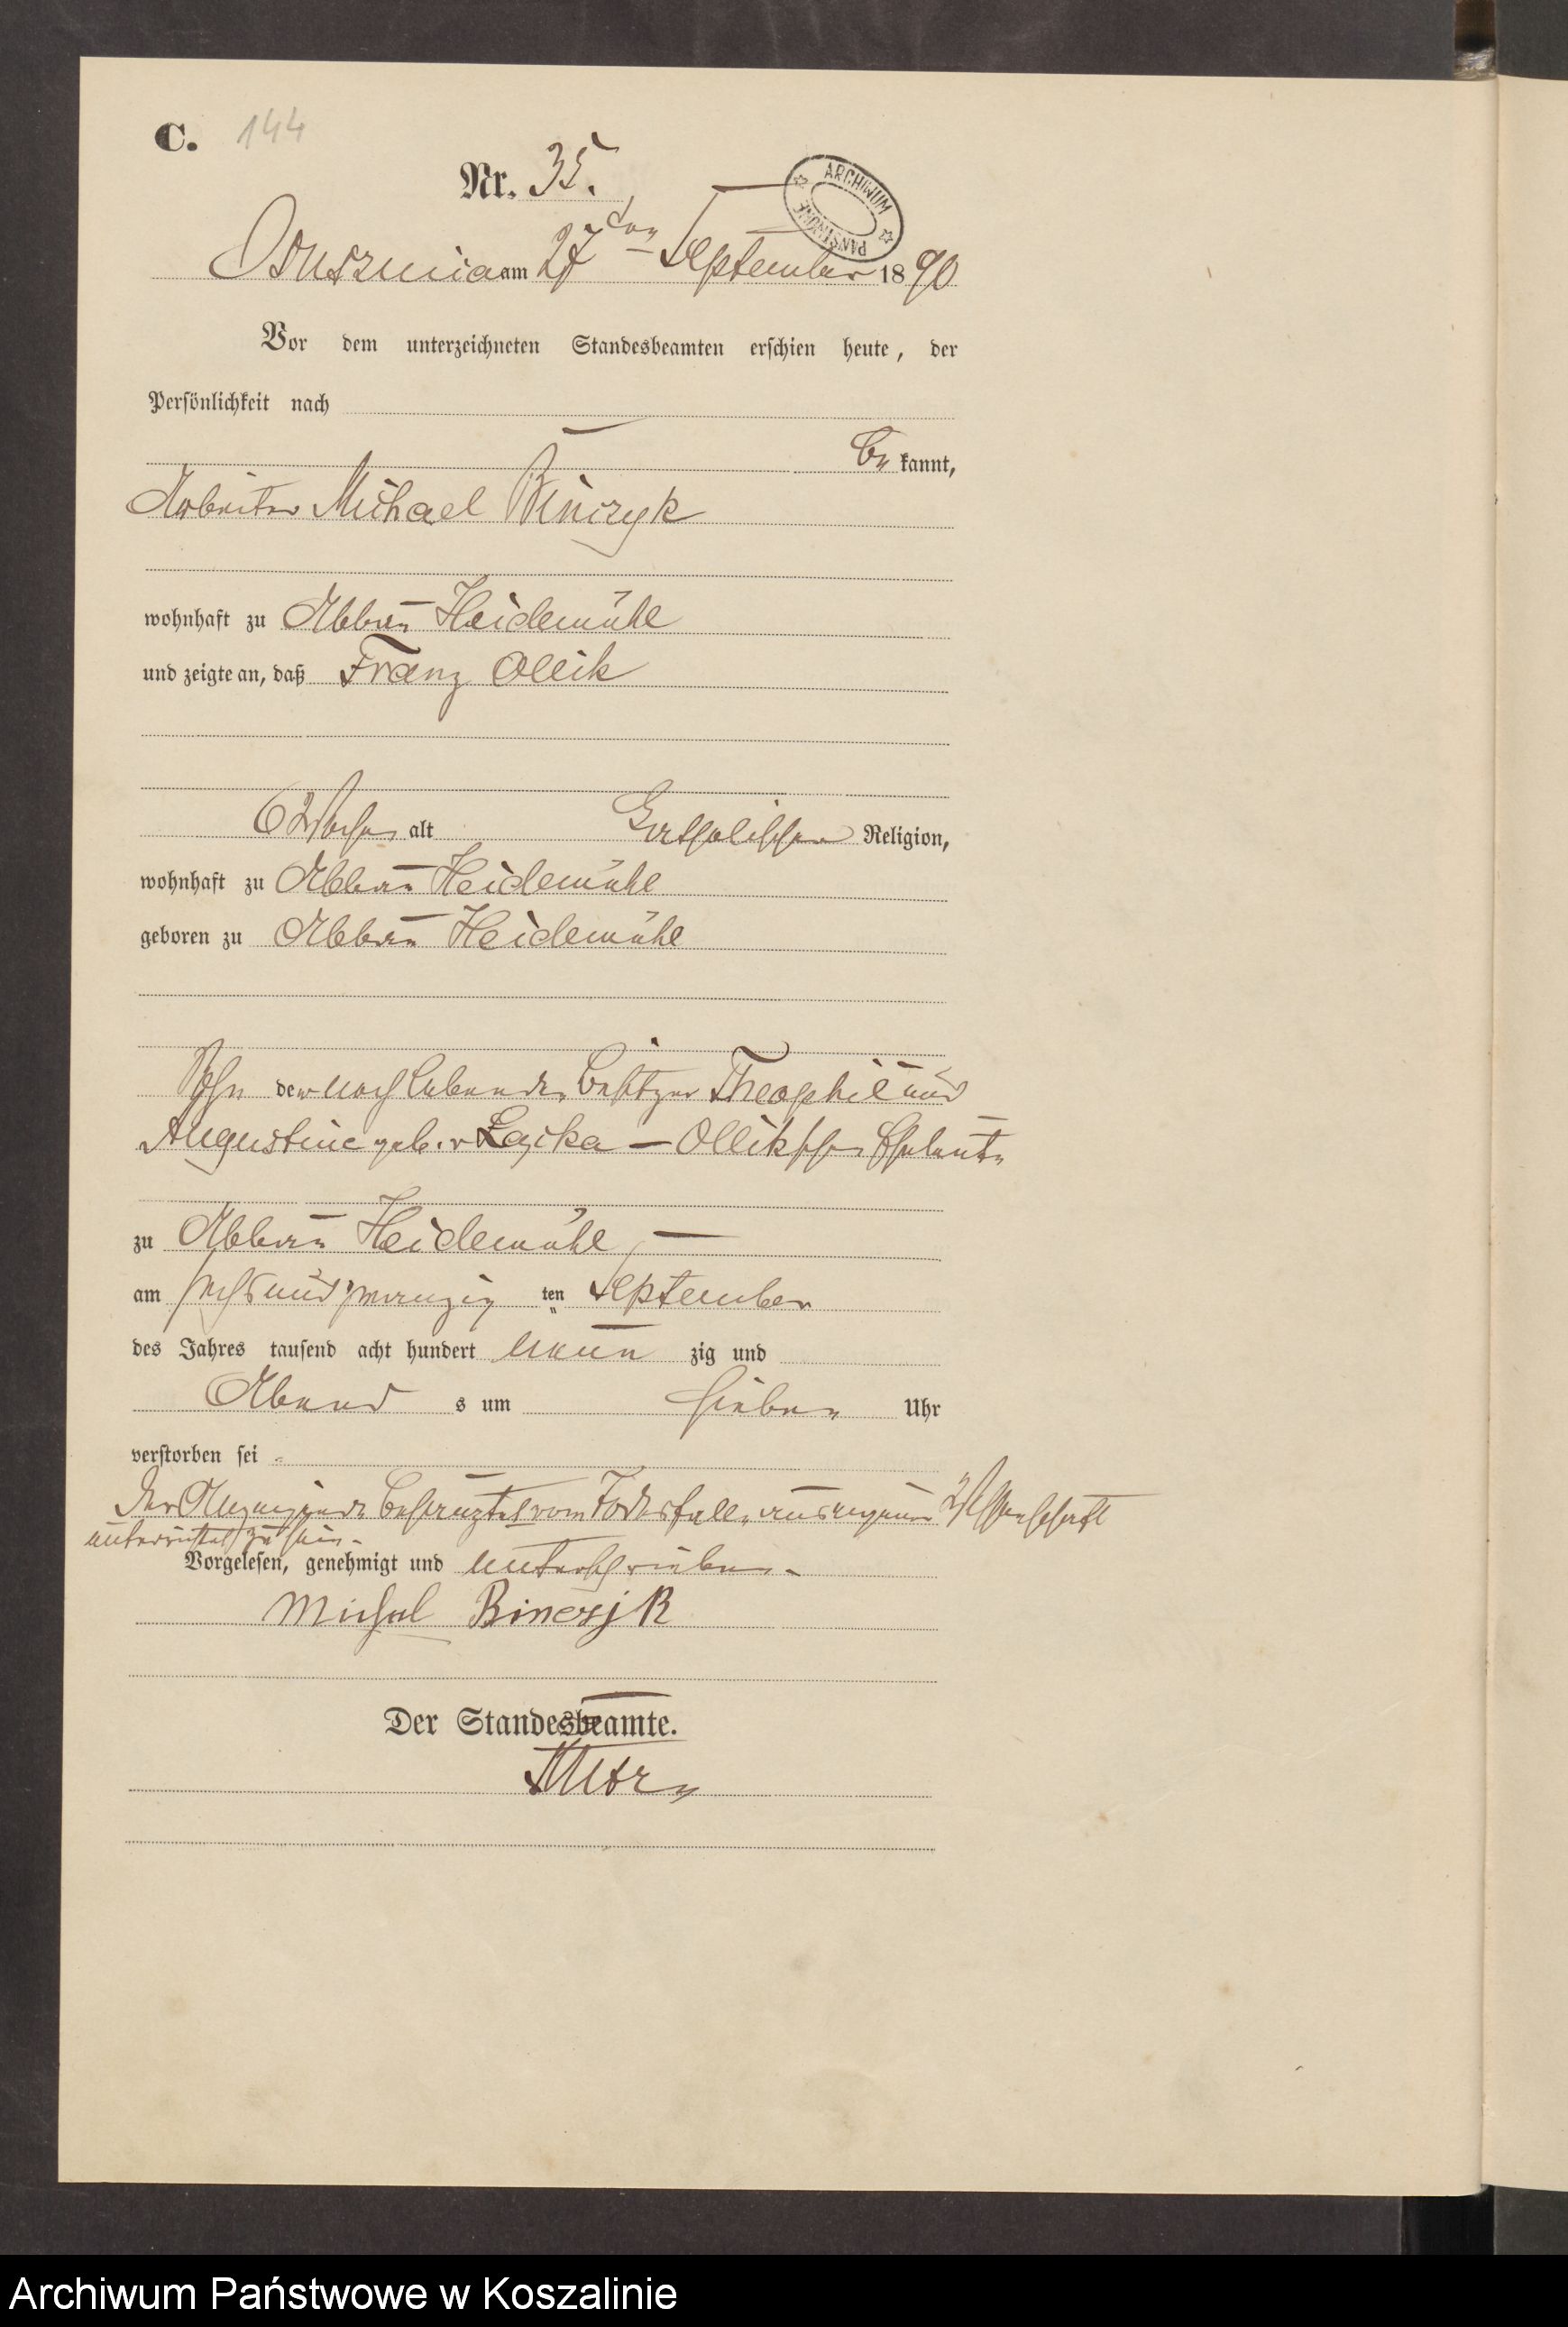 C. 144
Nr. 35.
ARCHIWUM PAŃSTWOWE
am 27ten September 1890
Vor dem unterzeichneten Standesbeamten erschien heute, der
Persönlichkeit nach
be kannt,
Arbeiter Michael Binczyk
wohnhaft zu Abbau Heidemühl
und zeigte an, daß Franz Ollik
6 Wochen alt katholischer Religion,
wohnhaft zu Abbau Heidemühl
geboren zu Abbau Heidemühl
Sohn der noch lebenden Besitzer Theophil und
Augustine geb. Ollikschen Eheleute
zu Abbau Heidemühl
am sechs und zwanzig ten September
des Jahres tausend acht hundert neun zig und
Abend s um sieben Uhr
verstorben sei
Der Anzeigende vom Todesfalle aus eigener Wissenschaft
unterrichtet zu sein.
Vorgelesen, genehmigt und unterschrieben.
Michael Binczjk
Der Standesbeamte.
Archiwum Państwowe w Koszalinie